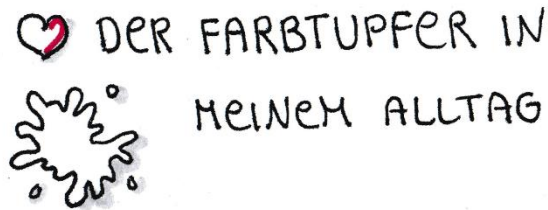 DER FARBTUPFER IN
MEINEM ALLTAG